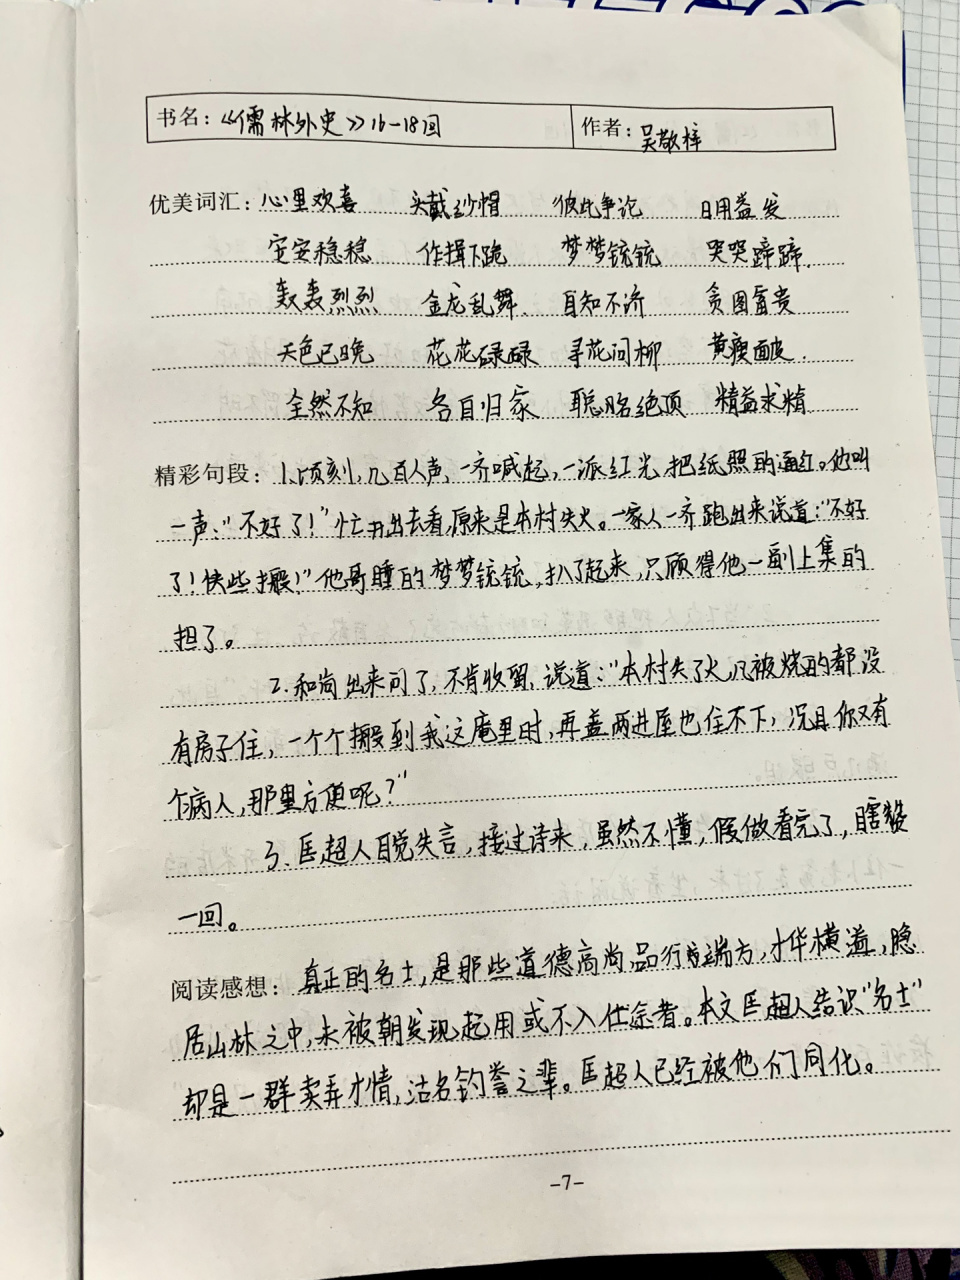 书名：《儒林外史》16-18回 作者：吴敬梓
优美词汇：心里欢喜 头戴纱帽 彼此争论 日用益发
安安稳稳 作揖下跪 梦梦铳铳 哭哭蹄蹄
轰轰烈烈 金龙乱舞 自知不济 贪图富贵
天色已晚 花花碌碌 寻花问柳 黄瘦面皮
全然不知 各自归家 聪明绝顶 精益求精
精彩句段：1、顷刻，几百人声，一齐喊起，一派红光，把纸照的通红。他叫
一声：“不好了！”忙开出去看，原来是本村失火。一家人一齐跑出来说道：“不好
了！快些搬！”他哥睡的梦梦铳铳，扒了起来，只顾得他一副上集的
担了。
2、和尚出来问了，不肯收留，说道：“本村失了火，凡被烧的都没
有房子住，一个个搬到我这庵里时，再盖两进屋也住不下，况且你又有
个病人，那里方便呢？”
3、匡超人自觉失言，接过诗来，虽然不懂，假做看完了，瞎赞
一回。
阅读感想：真正的名士，是那些道德高尚品行端方，才华横溢，隐
居山林之中，未被朝发现起用或不入仕宗者。本文匡超人结识“名士”
却是一群卖弄才情，沽名钓誉之辈。匡超人已经被他们同化。
-7-